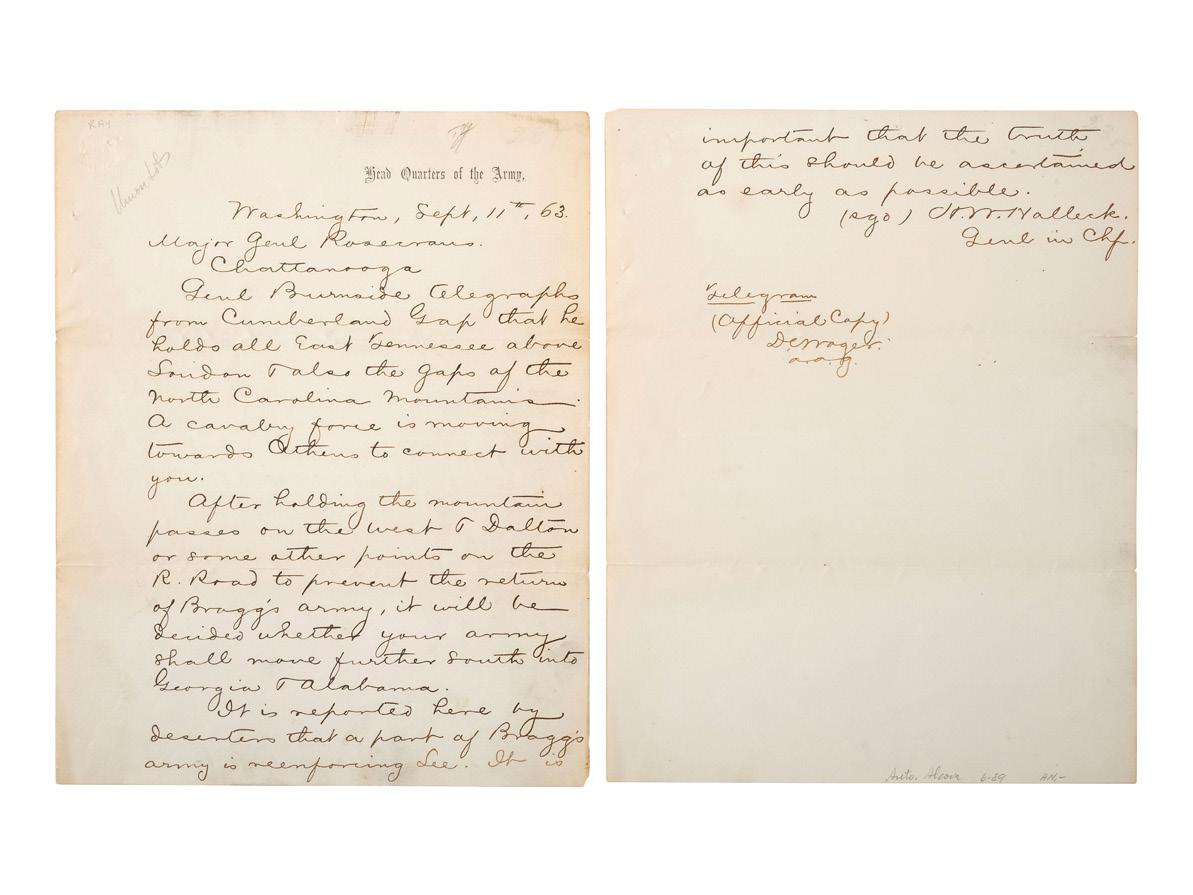 RAY
Head Quarters of the Army,
Washington, Sept, 11th, 63.
Major Genl Rosecrans.
Chattanooga
Genl Burnside telegraphs
from Cumberland Gap that he
holds all East Tennessee above
Loudon & also the gaps of the
North Carolina Mountains.
A cavalry force is moving
towards Athens to connect with
you.
After holding the mountain
passes on the west & Dalton
or some other points on the
R. Road to prevent the return
of Bragg's army, it will be
decided whether your army
shall move further south into
Georgia & Alabama.
It is reported here by
deserters that a part of Bragg's
army is reenforcing Lee. It is
important that the truth
of this should be ascertained
as early as possible.
(sgd) H.W. Halleck.
Genl in Chf.
Telegram
(Official Copy)
D.C. Wager.
a.a.g.
6-89